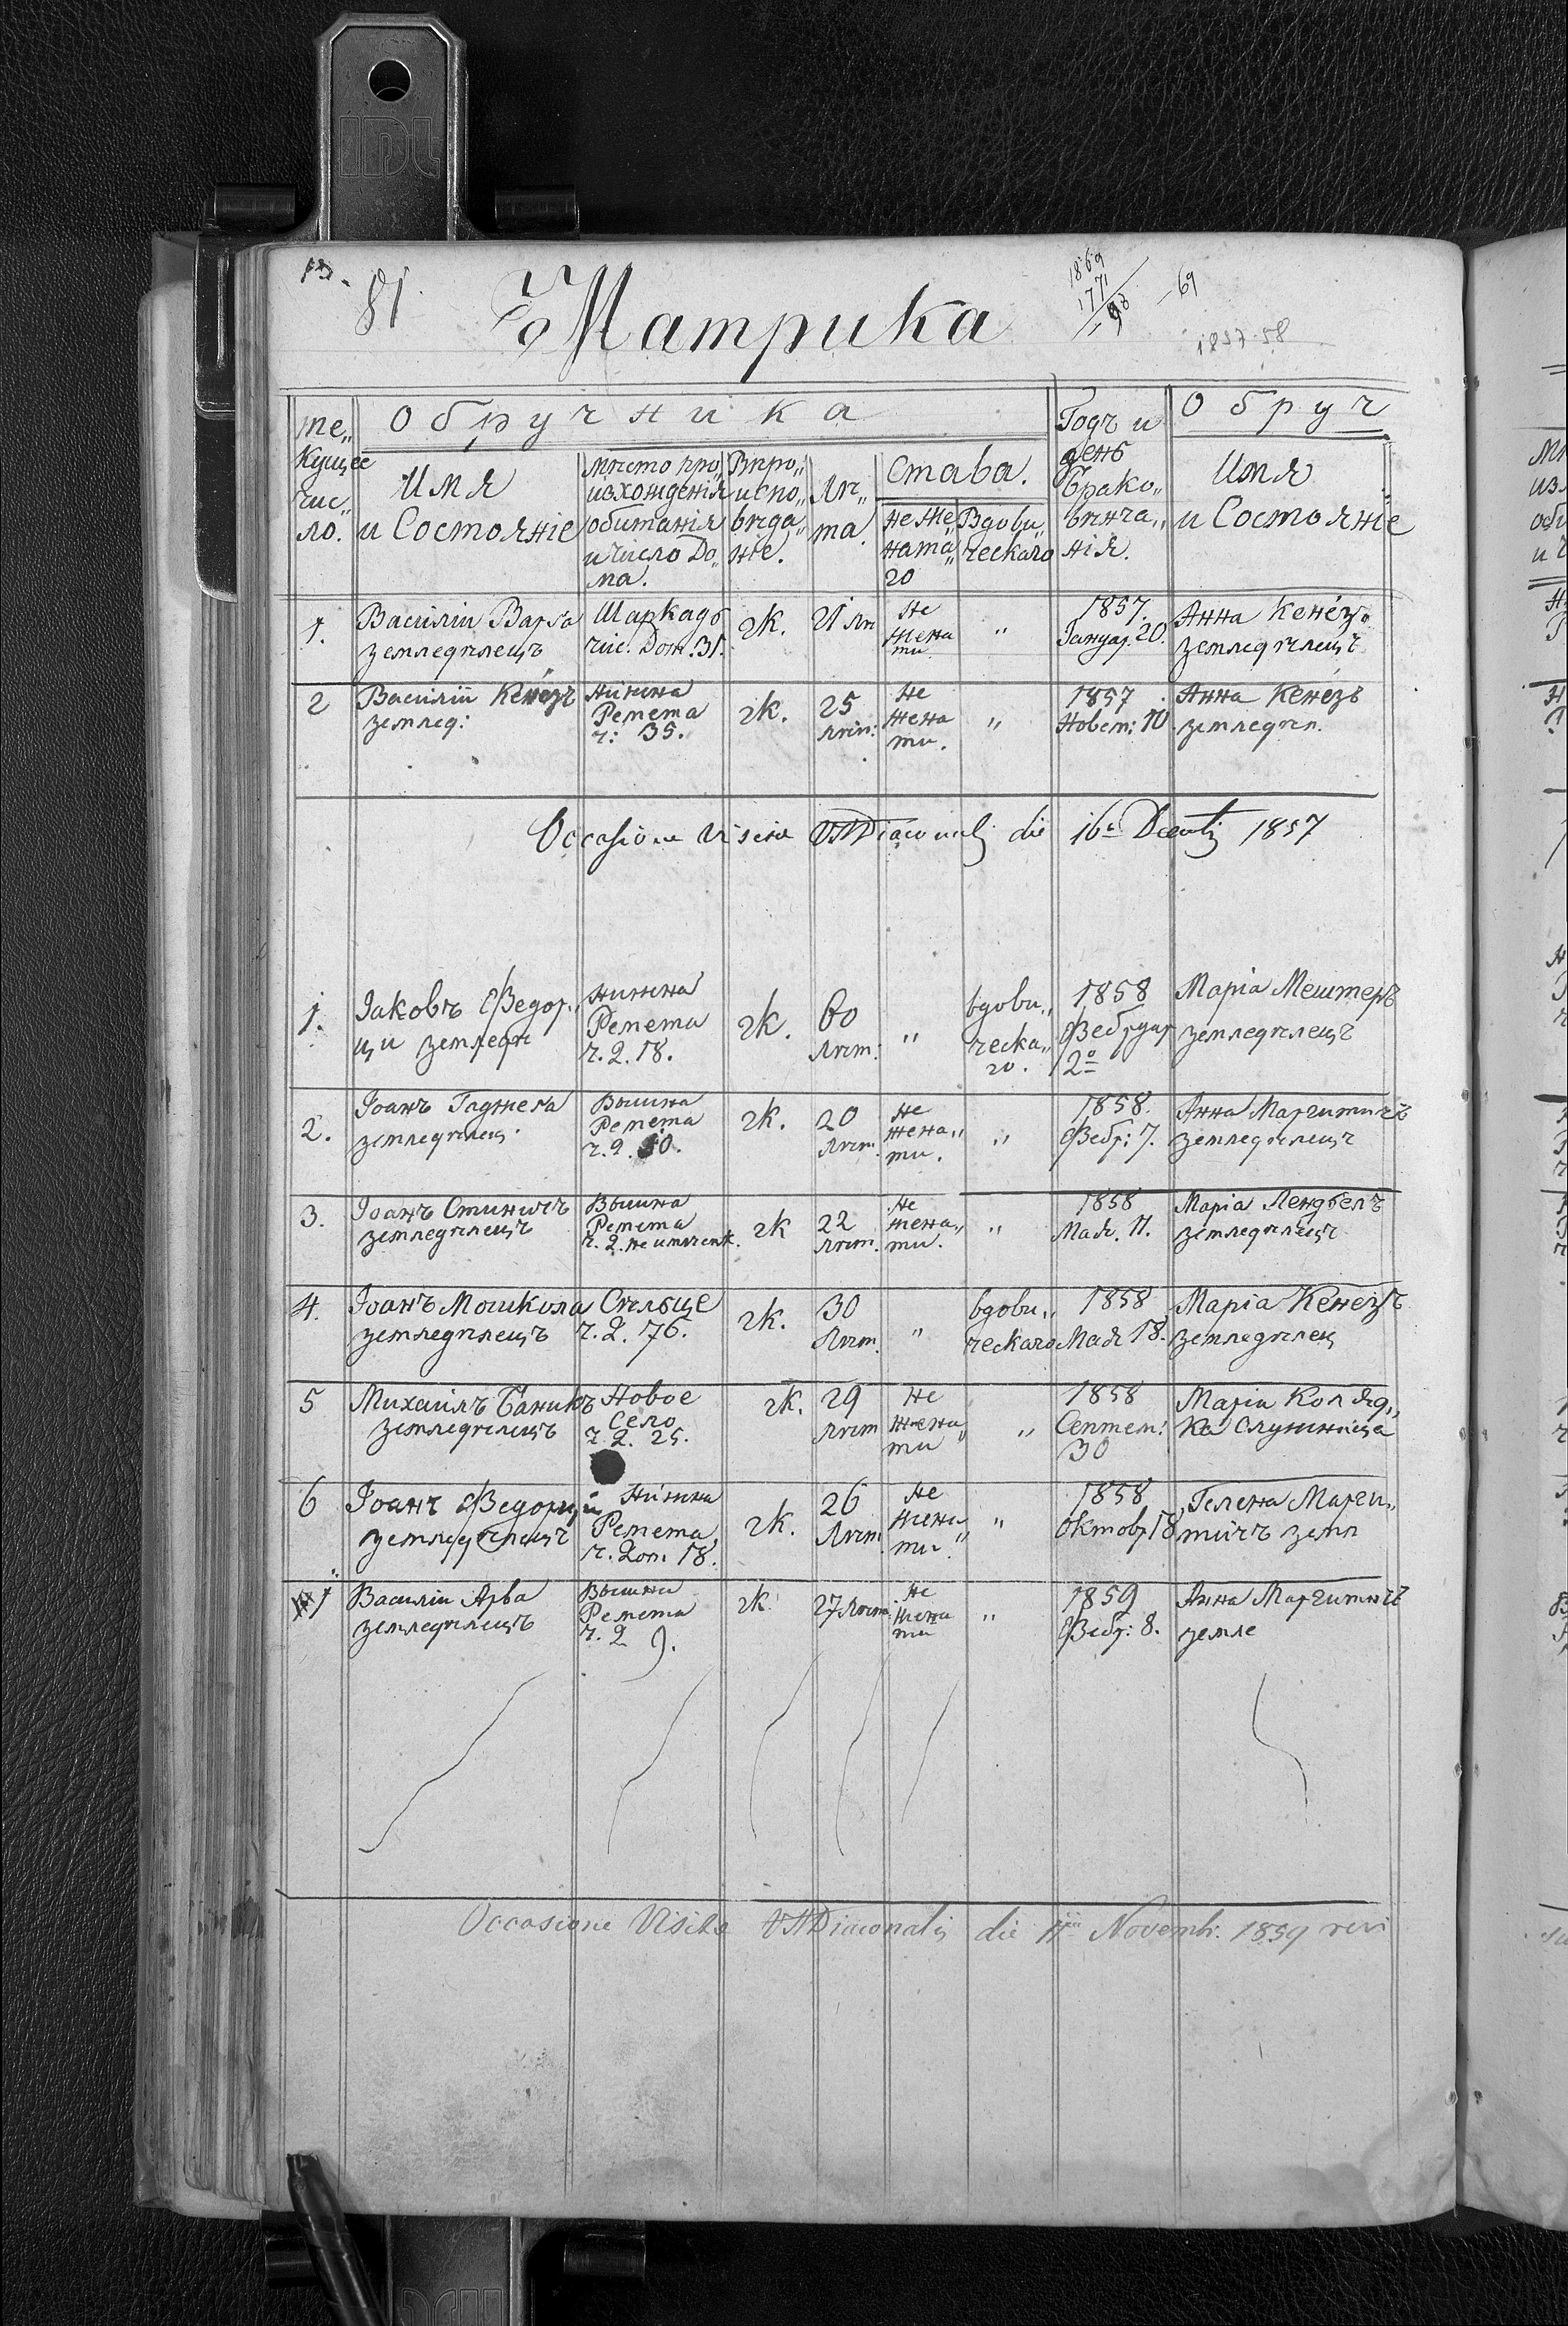 13.
81
Матрика
1869
1771
98
- 69
1857-58
Обручника
Обруч
те„
кущее
чис„
ло.
Имя
и Состоянїе
Мѣсто про„
изхожденїя
обитанїя
и число До„
ма.
Вѣро„
испо„
вѣда„
нїе.
Лѣ„
та.
Става.
не Же„
ната„
го
Вдови„
ческаго
Годъ и
день
Брако„
вѣнча„
нїя.
Имя
и Состоянїе
1.
Василїи Варга
земледѣлецъ
Шаркадъ
чис. Дом. 31.
гк.
21 лѣ
Не
жена
ти
„
1857.
Януар. 20.
Анна Кенéзъ
земледѣлецъ
2
Василїй Кенéзъ
землед:
Нижна
Ремета
ч: 35.
гк.
25
лѣт:
Не
жена
ти.
„
1857
Новем: 10
Анна Кенéзъ
земледѣл.
Occasione Visitae VADiaconalis die 16a Decemb 1857
1.
Іаковъ Ѳедор„
ци земледѣ
нижна
Ремета
ч. д. 18.
гк.
60
лѣт:
„
вдови„
ческа„
го.
1858
Фебруар
2º
Марїа Мештеръ
земледѣлецъ
2.
Іоанъ Гаджега
земледѣлец.
Вышна
Ремета
ч. д. 50.
гк.
20
лѣт.
Не
жена„
ти.
„
1858.
Фебр: 7.
Анна Маргитичъ
земледѣлецъ
3.
Іоанъ Стиничъ
земледѣлецъ
Вышна
Ремета
гк
22
лѣт.
Не
жена„
ти.
„
1858
Маѧ. 11.
Марїа Лендѣелъ
земледѣлецъ
4.
Іоанъ Мошкола
земледѣлецъ
Сѣльце
ч. д. 76.
гк.
30
лѣт.
„
вдови„
ческаго
1858
Маѧ 18.
Марїа Кенезъ
земледѣлец
5
Михаилъ Баникъ
земледѣлецъ
Новое
Село
ч. д. 25.
гк.
29
лѣт
Не
жена
ти „
„
1858
Септем:
30
Марїа Коляд„
ка Служниїца
6
Іоанъ Ѳедорци
земледѣлецъ
Нижна
Ремета
ч. дом. 18.
гк.
26
лѣт.
Не
жена
ти „
„
1858
Октовр 18
Гелена Марги„
тичъ земл
1
Василїи Арва
земледѣлецъ
Вышна
Ремета
ч. д 9.
гк
27 лѣт.
Не
жена
ти
„
1859
Фебр: 8.
Анна Маргитичъ
земле
Occasione Visitae VADiaconalis die 11ª Novembr. 1859 revi